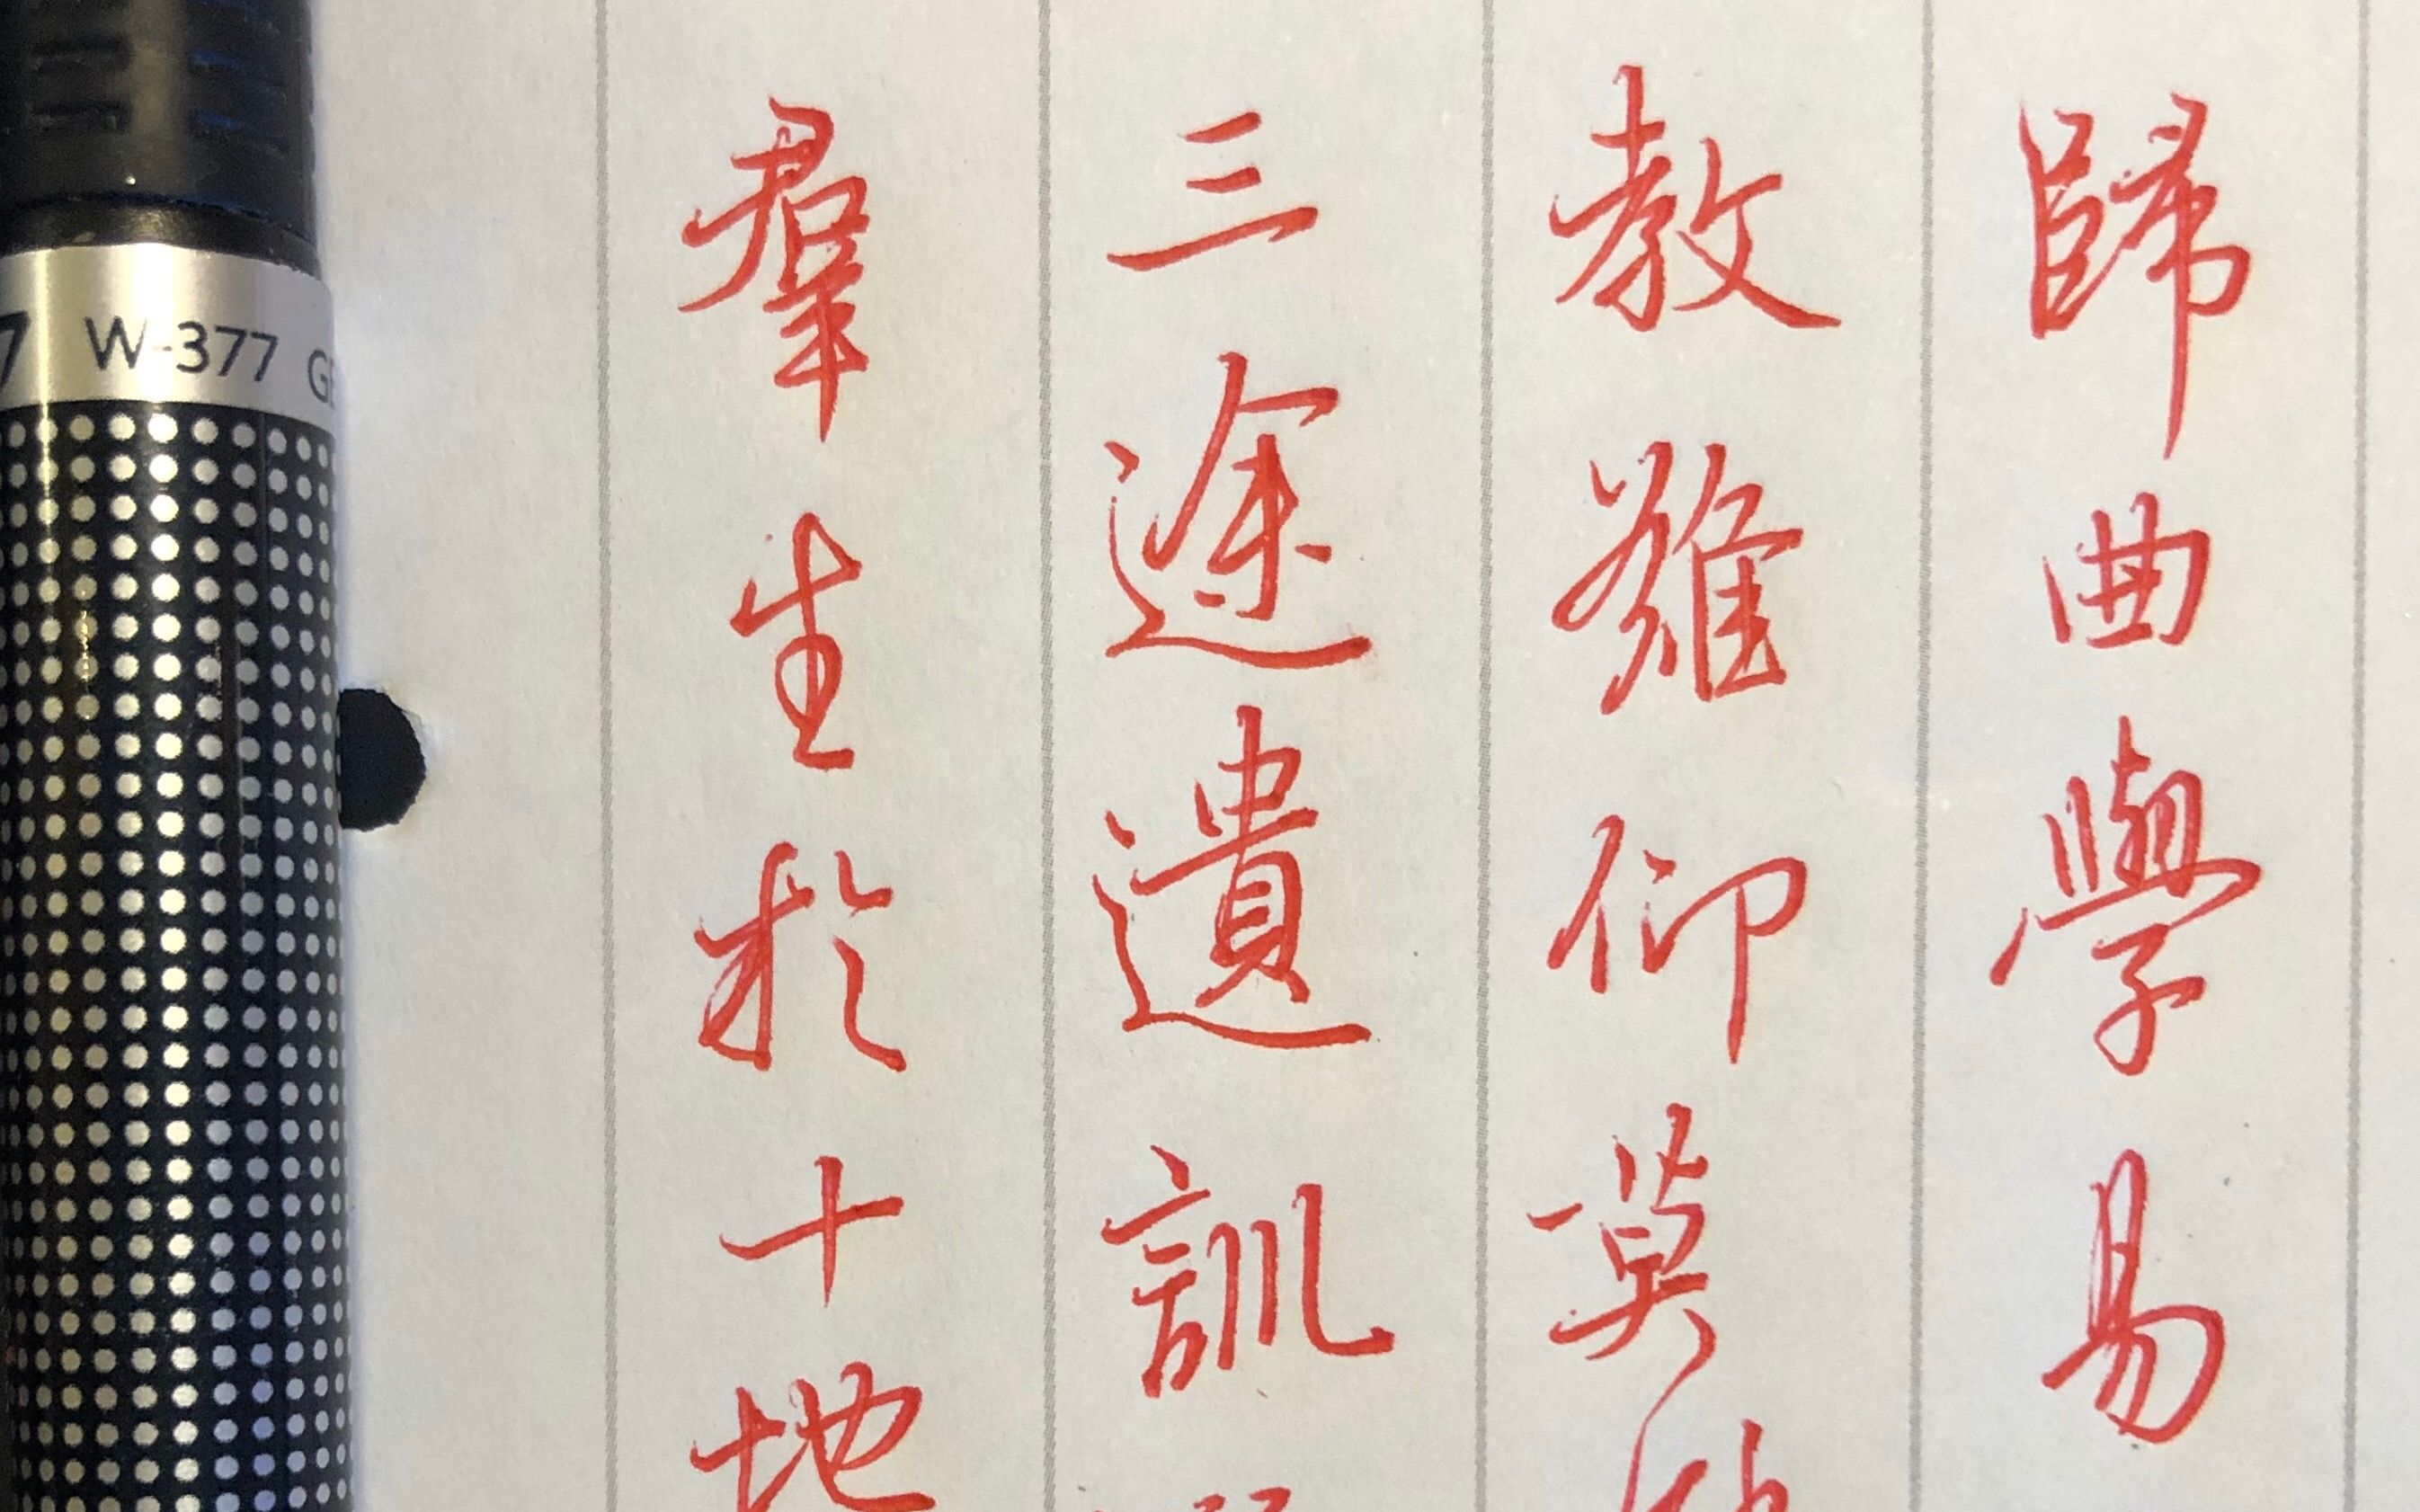 歸曲學易
教難仰莫
三途遺訓
羣生於十地
7 W-377